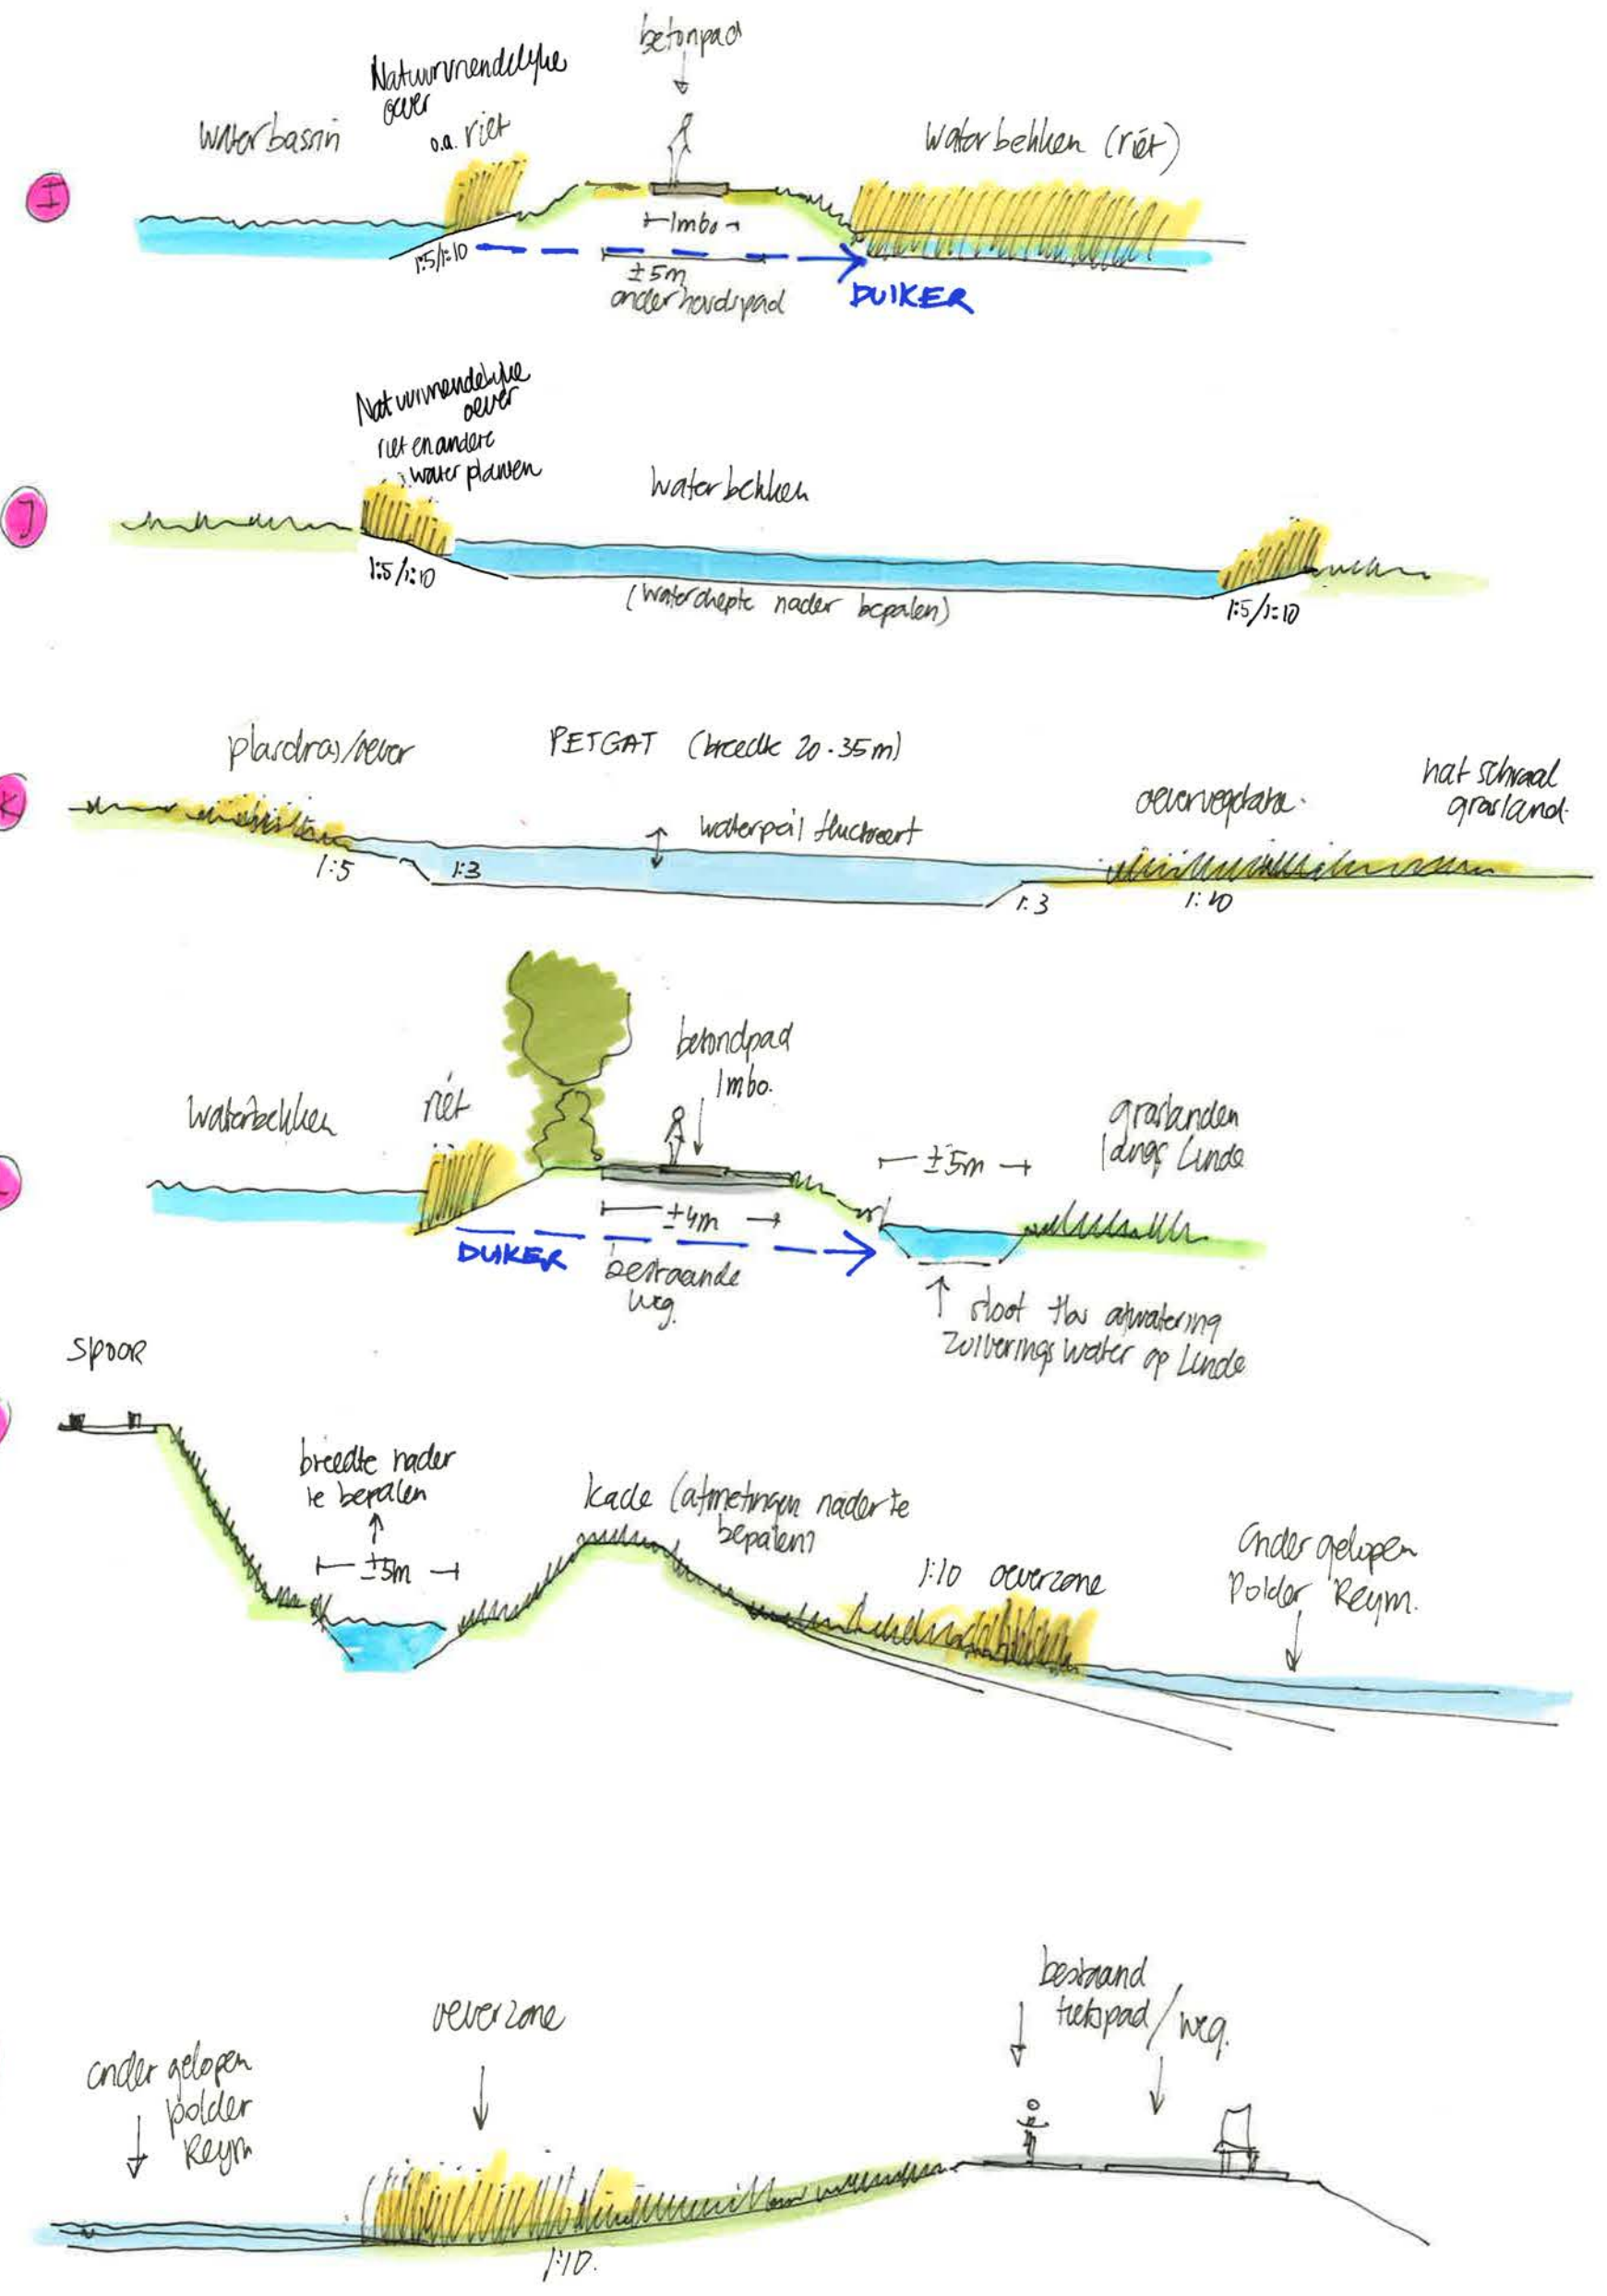 I
waterbassin
Natuurvriendelijke
oever
o.a. riet
betonpad
waterbekken (riet)
1:5/1:10
1mbo
±5m
onderhoudspad
DUIKER
J
Natuurvriendelijke
oever
riet en andere
waterplanten
waterbekken
1:5/1:10
(waterdiepte nader bepalen)
1:5/1:10
K
plasdras/oever
PETGAT (breedte 20-35m)
waterpeil fluctueert
oevervegetatie
nat schraal
grasland
1:5
1:3
1:3
1:10
waterbekken
riet
betondpad
1mbo.
±5m
graslanden
langs Linde
±4m
DUIKER
bestaande
weg.
sloot tbv afwatering
zuiveringswater op Linde
SPOOR
breedte nader
te bepalen
±5m
kade (afmetingen nader te
bepalen)
1:10 oeverzone
onder gelopen
Polder Reym.
onder gelopen
polder
Reym
oeverzone
bestaand
fietspad/weg.
1:10.